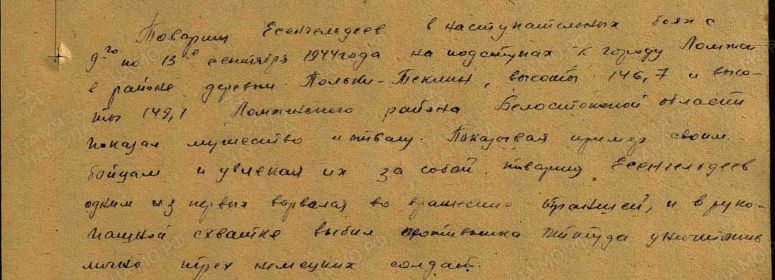 Товарищ Есенгельдеев в наступательных боях с
9го по 13е сентября 1944 года на подступах к городу Ломжа
в районе деревни Польки-Теклин, высоты 146,7 и высо-
ты 149,1 Ломжинского района Белостокской области
показал мужество и отвагу. Показывая пример своим
бойцам и увлекая их за собой, товарищ Есенгельдеев
одним из первых ворвался во вражеские траншей, и в руко-
пашной схватке выбил противника оттуда уничтожив
лично трех немецких солдат.